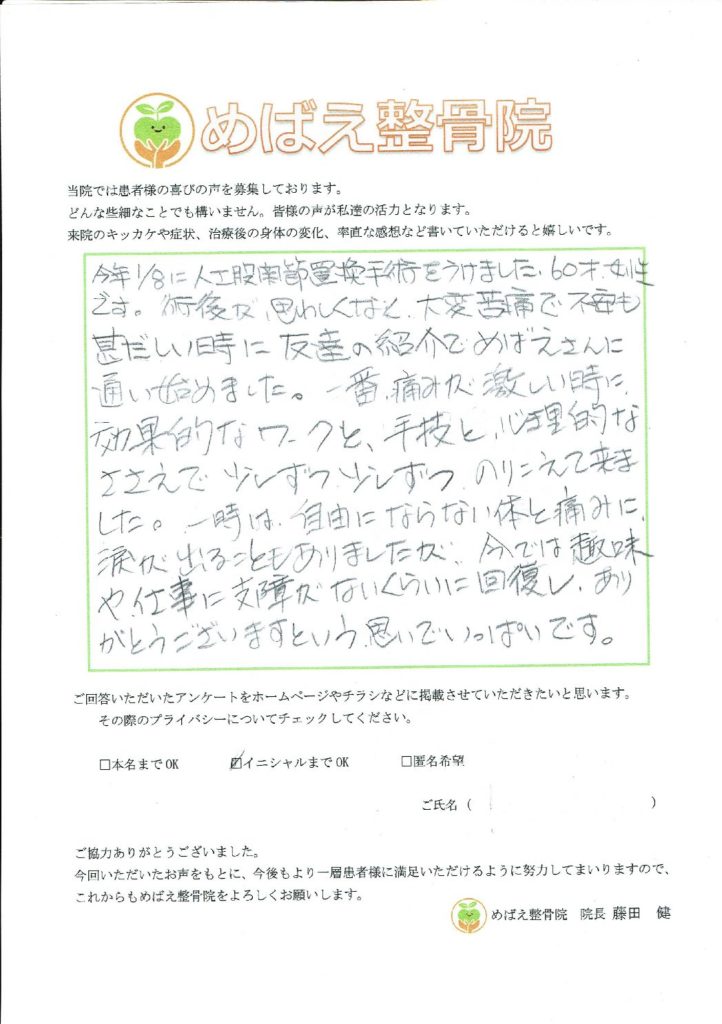 めばえ整骨院
当院では患者様の喜びの声を募集しております。
どんな些細なことでも構いません。皆様の声が私達の活力となります。
来院のキッカケや症状、治療後の身体の変化、率直な感想など書いていただけると嬉しいです。
今年1/8に人工股関節置換手術をうけました、60才、女性
です。術後が、思わしくなく、大変苦痛で不安も
甚だしい時に友達の紹介でめばえさんに
通い始めました。一番、痛みが激しい時に、
効果的なワークと、手技と、心理的な
ささえで少しずつ、少しずつ、のりこえて来ま
した。一時は、自由にならない体と痛みに、
涙が出ることもありましたが、今では趣味
や、仕事に支障がないくらいに回復し、あり
がとうございますという、思いでいっぱいです。
ご回答いただいたアンケートをホームページやチラシなどに掲載させていただきたいと思います。
その際のプライバシーについてチェックしてください。
□本名までOK ☑イニシャルまでOK □匿名希望
ご氏名（ ）
ご協力ありがとうございました。
今回いただいたお声をもとに、今後もより一層患者様に満足いただけるように努力してまいりますので、
これからもめばえ整骨院をよろしくお願いします。
めばえ整骨院 院長 藤田 健